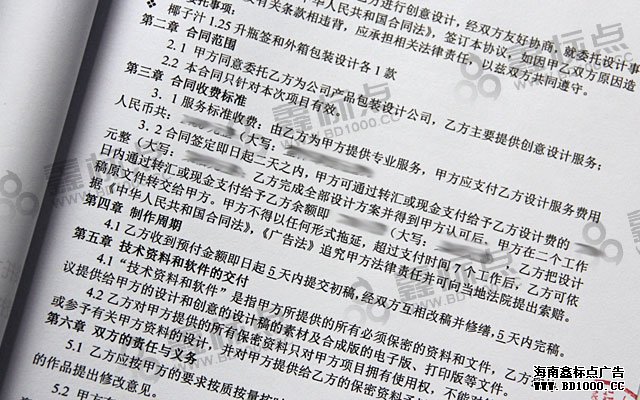 方进行创意设计,经双方友好协商,就委托设计事
有关条款相违背,应承担相关法律责任,以兹双方共同遵守。
椰子汁 1.25 升瓶签和外箱包装设计各 1 款
第二章 合同范围
2.1 甲方同意委托乙方为公司产品包装设计公司,乙方主要提供创意设计服务;
2.2 本合同只针对本次项目有效,
第三章 合同收费标准
3.1 服务标准收费,由乙方为甲方提供专业服务,甲方应支付乙方设计服务费用
人民币共: (大写:
3.2 合同签定即日起二天之内,甲方可通过转汇或现金支付给予乙方设计费的
元整(大写: 乙方完成全部设计方案并得到甲方认可后,甲方在二个工作
日内通过转汇或现金支付给予乙方余额即 (大写: 乙方把设计
稿原文件转交给甲方。甲方不得以任何形式拖延,超过支付时间 7 个工作后,乙方可依
据《中华人民共和国合同法》,《广告法》追究甲方法律责任并可向当地法院提出索赔。
第四章 制作周期
4.1 乙方收到预付金额即日起 5 天内提交初稿,经双方互相改稿并修缮,5 天内完稿。
第五章 技术资料和软件的交付
4.1 “技术资料和软件”是指甲方所提供的所有必须保密的资料和文件,乙方
议提供给甲方的设计和创意的设计搞的素材及合成版的电子版、打印版等文件。
4.2 乙方对甲方提供的所有保密资料只对甲方项目拥有使用权,不能对
或参予有关甲方资料的设计,并对甲方提供给乙方的保密资料
第六章 双方的责任与义务
5.1 乙方应按甲方的要求按质按量按
的作品提出修改意见。
5.2 甲方
鑫标点
WWW.BD1000.CC
海南鑫标点广告
WWW.BD1000.CC